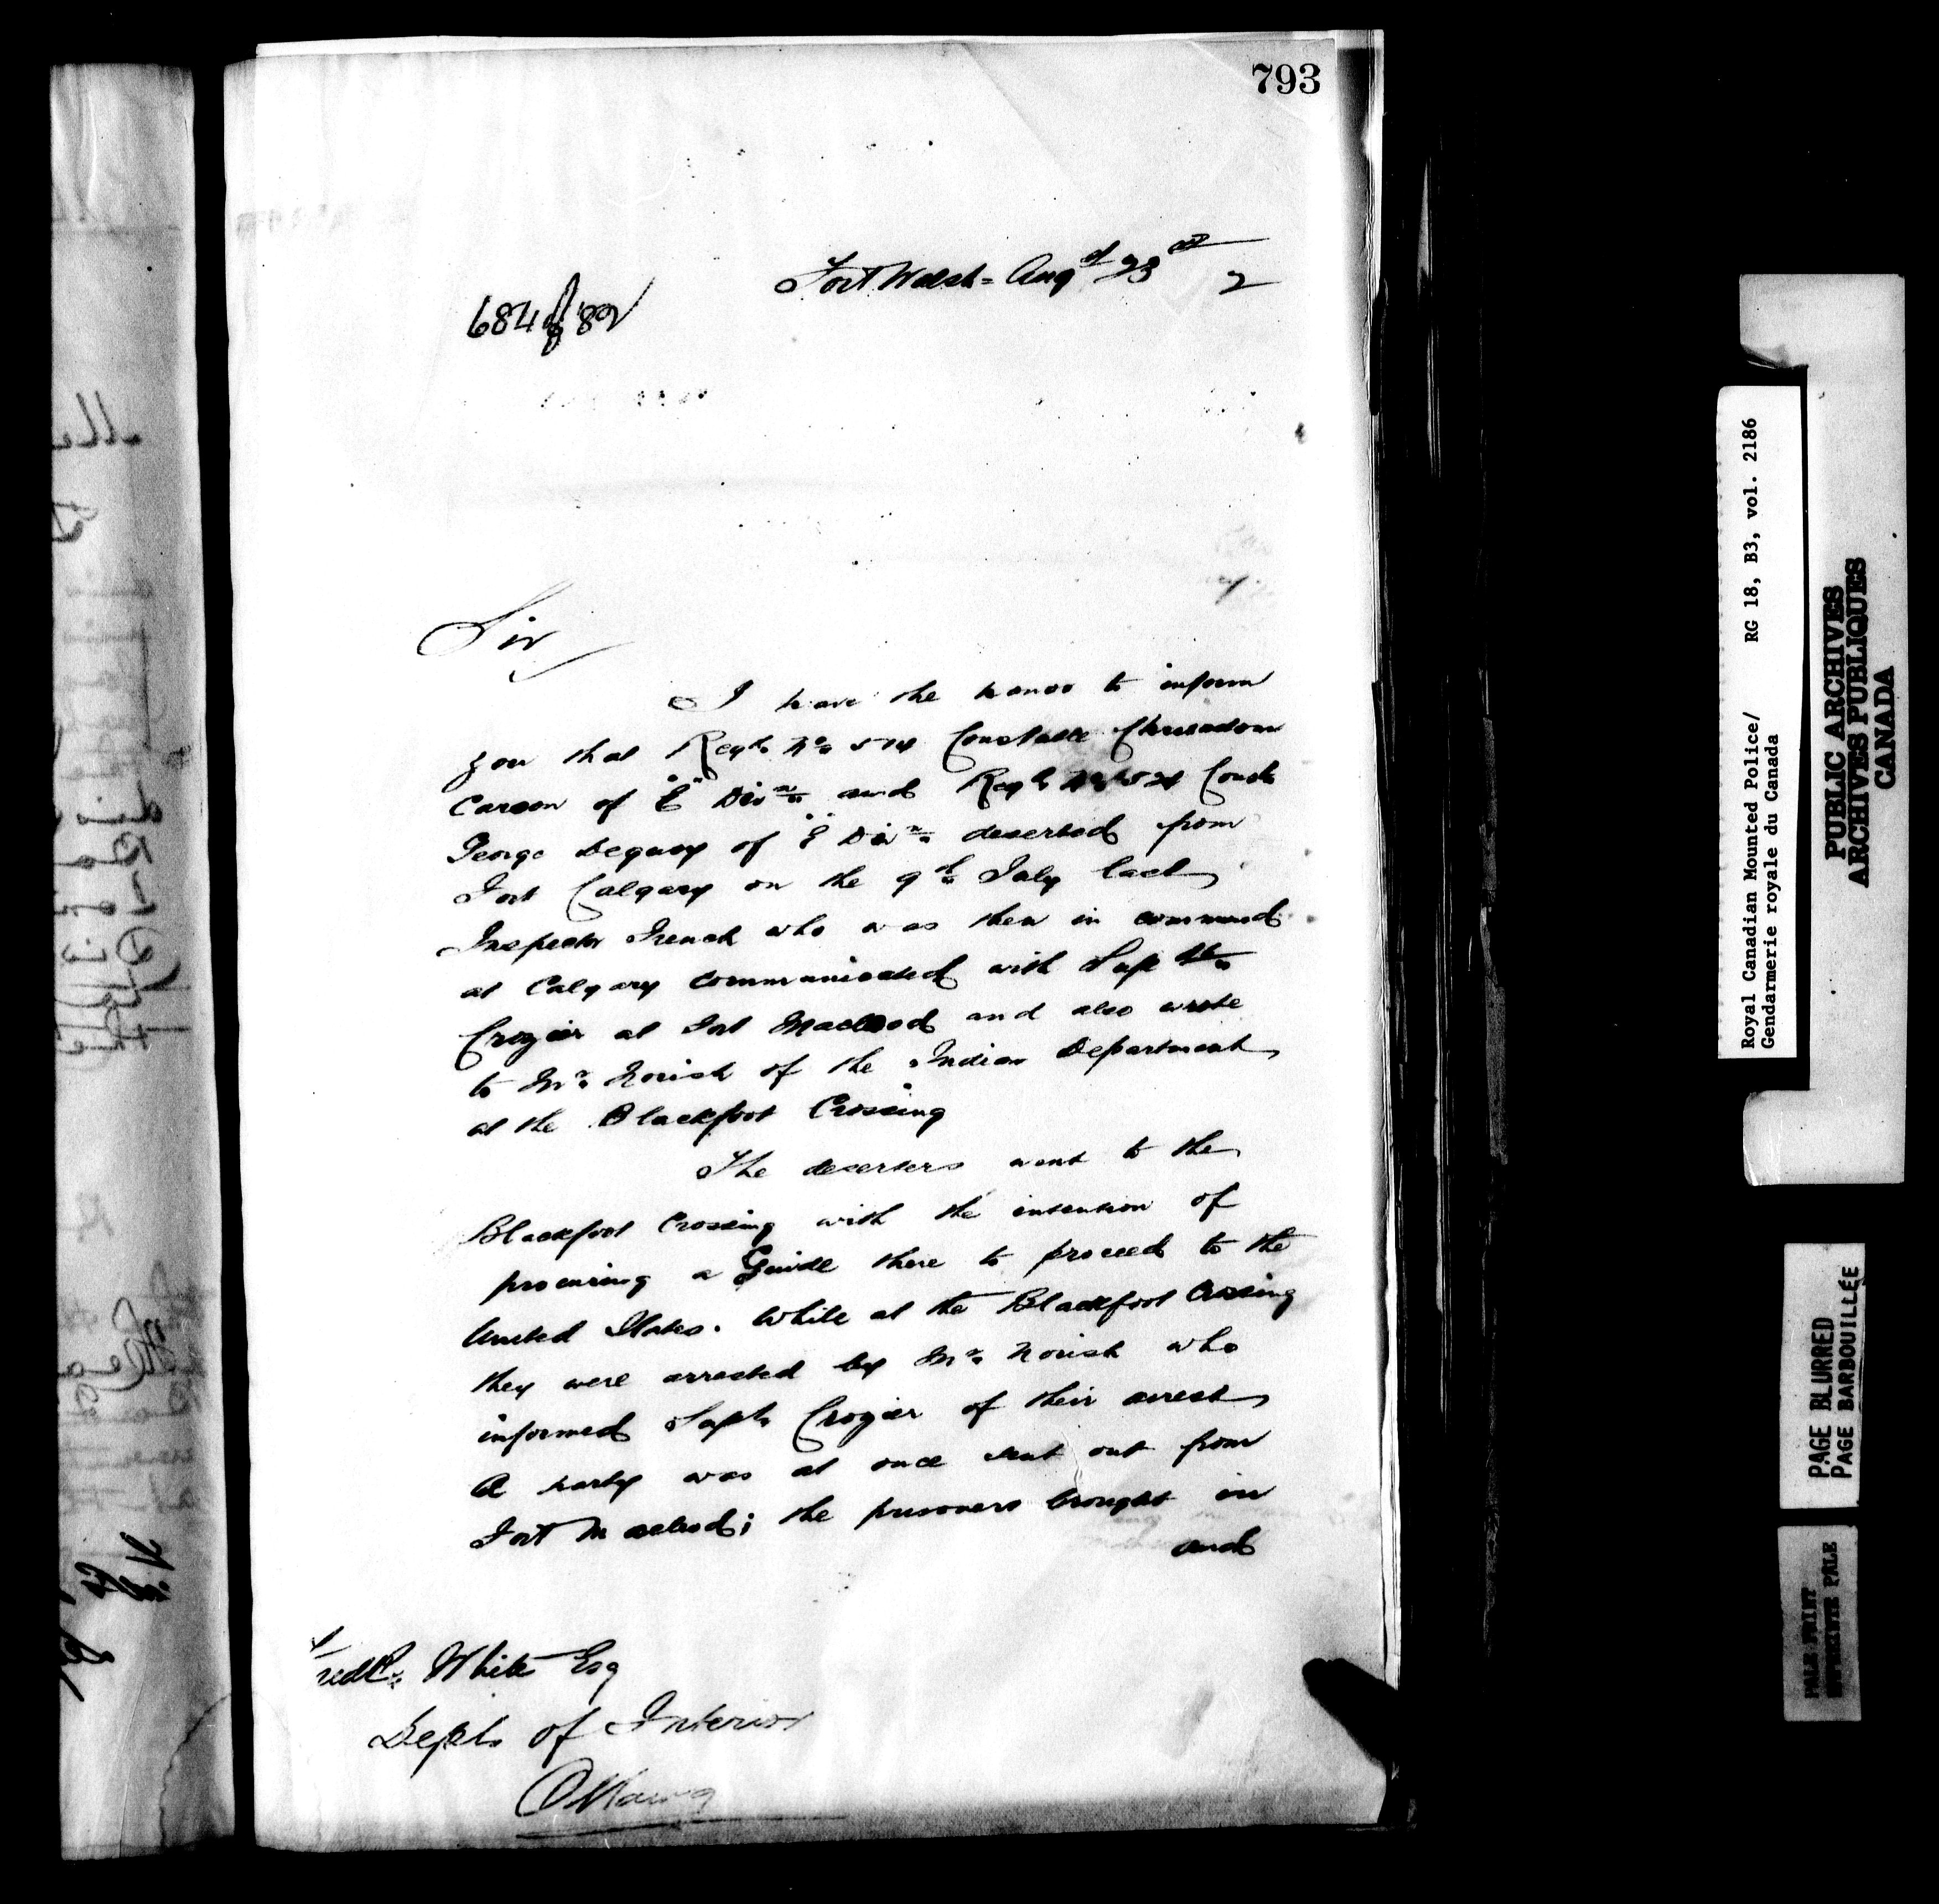 793
Fort Walsh = Augst 23rd 2
684 of '82
Sir
I have the honor to inform
you that Regtl No 574 Constable
Carson of "E" Divn and Regtl No Const
George Deguay of "E" Divn deserted from
Fort Calgary on the 9th July last
Inspector French who was then in command
at Calgary communicated with Supt
Crozier at Fort Macleod and also wrote
to Mr Norish of the Indian Department
at the Blackfoot Crossing
The deserters went to the
Blackfoot Crossing with the intention of
procuring a Guide there to proceed to the
United States. While at the Blackfoot Crossing
they were arrested by Mr Norish who
informed Supt Crozier of their arrest
A party was at once sent out from
Fort Macleod; the prisoners brought in
and
Fredk White Esq
Dept of Interior
Ottawa
Royal Canadian Mounted Police/ RG 18, B3, vol. 2186
Gendarmerie royale du Canada
PUBLIC ARCHIVES
ARCHIVES PUBLIQUES
CANADA
PAGE BLURRED
PAGE BARBOUILLÉE
PALE PRINT
PALE